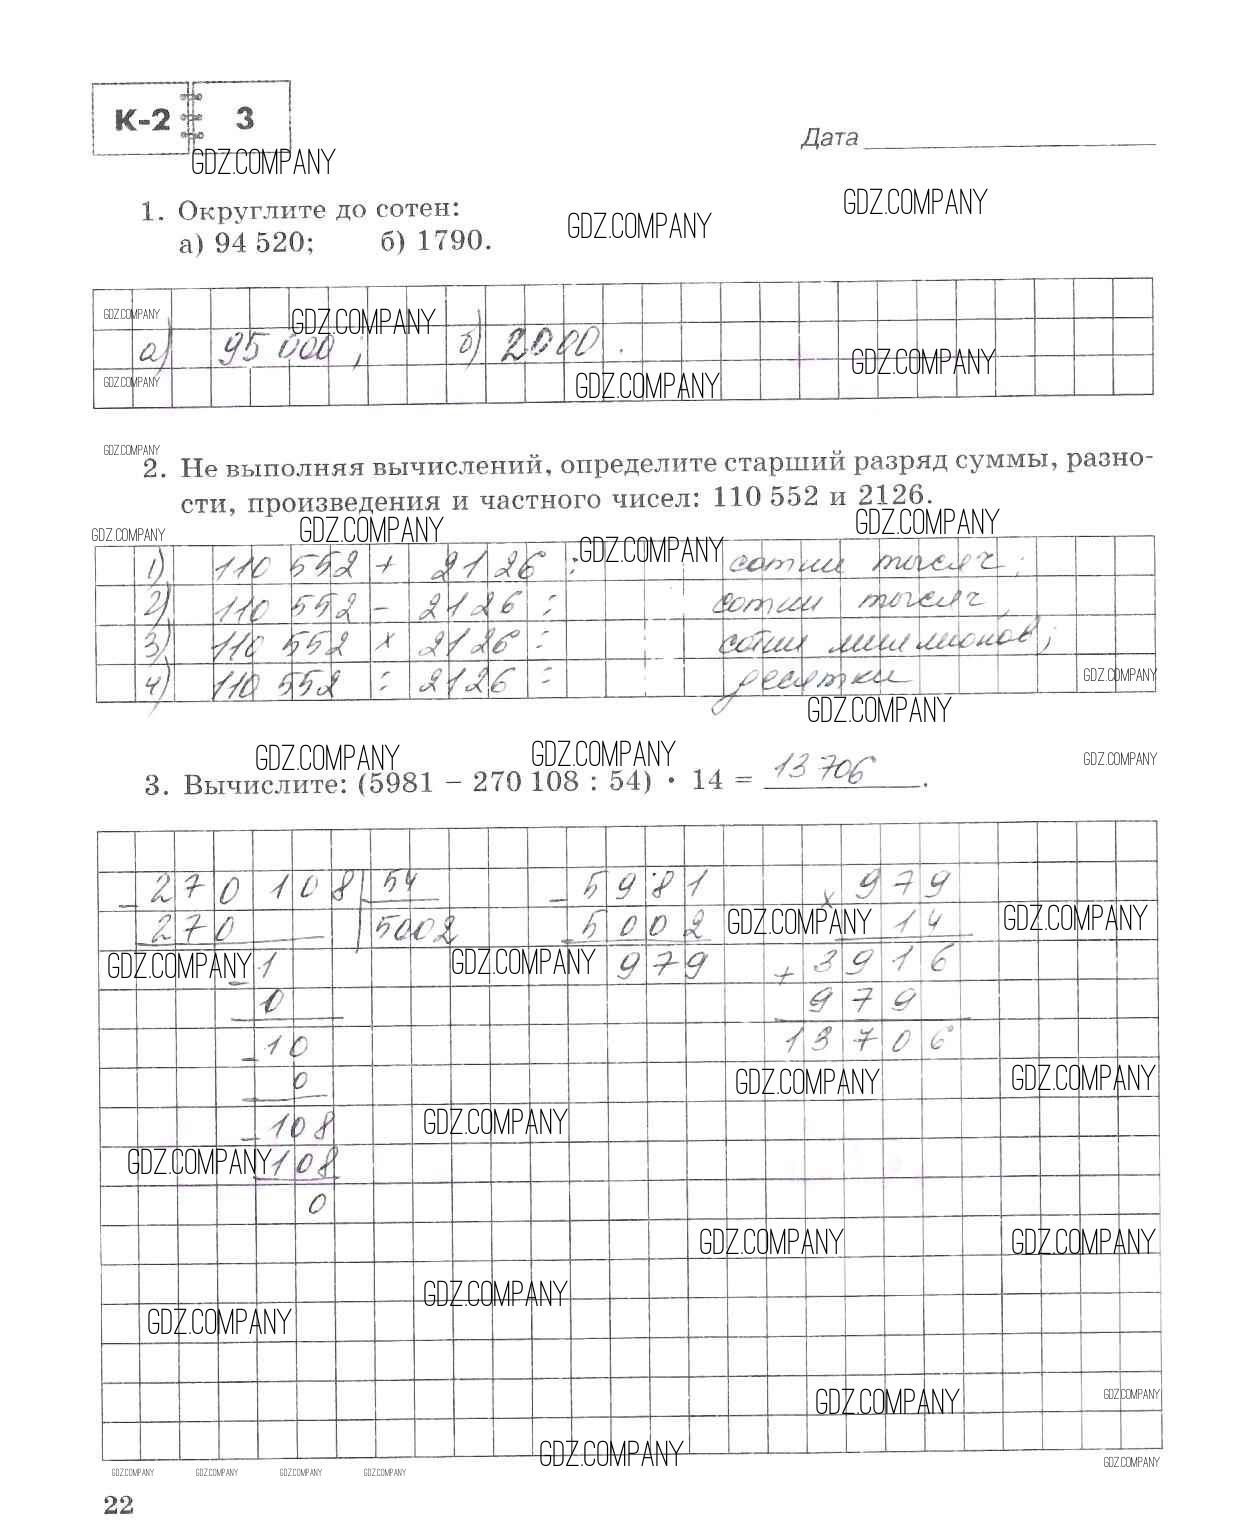 К-2 3
Дата
GDZ.COMPANY
GDZ.COMPANY
1. Округлите до сотен:
GDZ.COMPANY
а) 94 520; б) 1790.
GDZ.COMPANY
GDZ.COMPANY
а) 95 000 ; б) 2000 .
GDZ.COMPANY
GDZ.COMPANY
GDZ.COMPANY
GDZ.COMPANY
2. Не выполняя вычислений, определите старший разряд суммы, разно-
сти, произведения и частного чисел: 110 552 и 2126.
GDZ.COMPANY
GDZ.COMPANY
GDZ.COMPANY
GDZ.COMPANY
1) 110 552 + 2126 : сотни тысяч ;
2) 110 552 - 2126 : сотни тысяч ,
3) 110 552 x 2126 : сотни миллионов ;
4) 110 552 : 2126 : десятки
GDZ.COMPANY
GDZ.COMPANY
GDZ.COMPANY
GDZ.COMPANY
GDZ.COMPANY
3. Вычислите: (5981 − 270 108 : 54) • 14 = 13 706 .
- 270 108 54 - 5981 x 979
270 5002 5002 14
GDZ.COMPANY
GDZ.COMPANY
GDZ.COMPANY
GDZ.COMPANY
- 1 979 + 3916
0 979
- 10 13706
0
GDZ.COMPANY
GDZ.COMPANY
- 108
GDZ.COMPANY
108
GDZ.COMPANY
0
GDZ.COMPANY
GDZ.COMPANY
GDZ.COMPANY
GDZ.COMPANY
GDZ.COMPANY
GDZ.COMPANY
GDZ.COMPANY
GDZ.COMPANY
GDZ.COMPANY GDZ.COMPANY GDZ.COMPANY GDZ.COMPANY
22